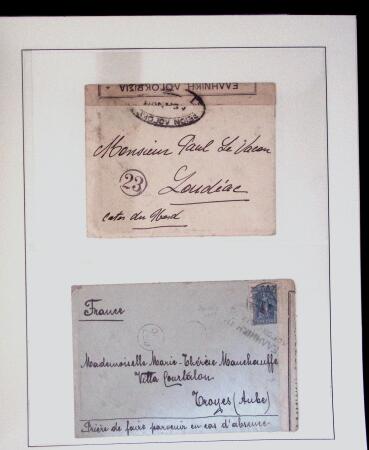 ΕΛΛΗΝΙΚΗ ΛΟΓΟΚΡΙΣΙΑ
Monsieur Paul Le Vacon
23
Loudéac
Cotes du Nord
France
Mademoiselle Marie-Thérèse Manchauffe
Villa Courtalon
Troyes (Aube)
Prière de faire parvenir en cas d'absence